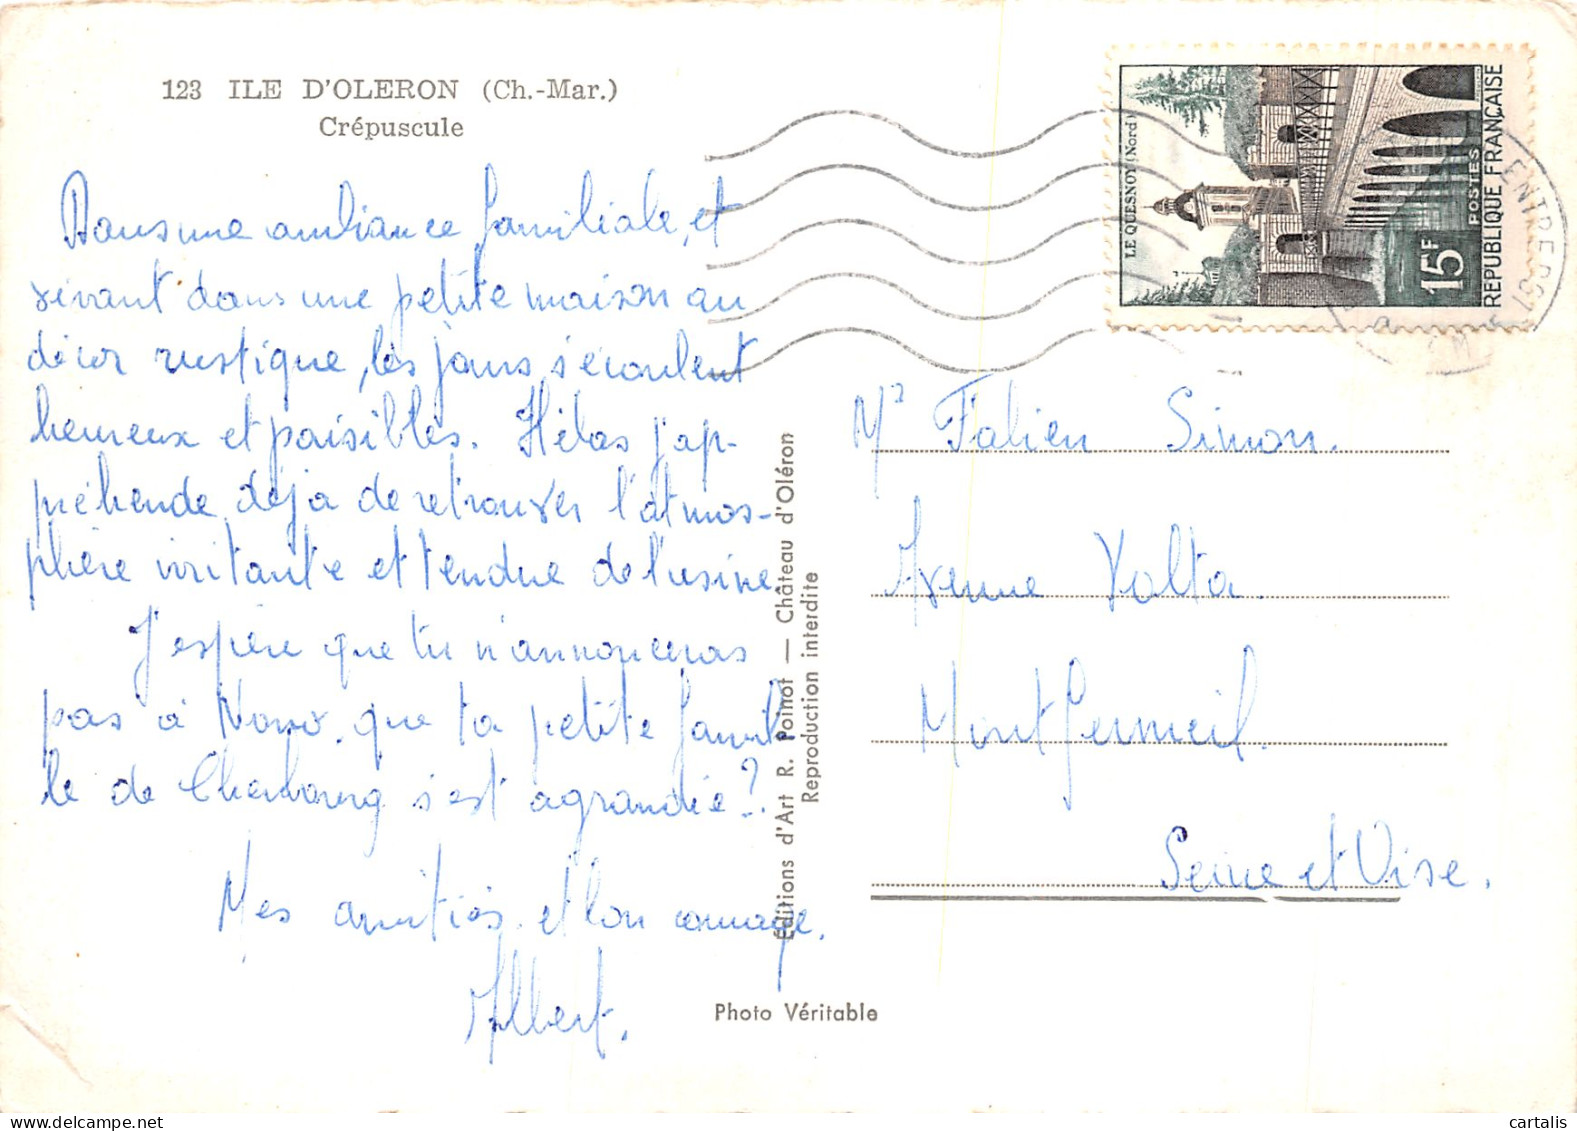 123 ILE D'OLERON (Ch.-Mar.)
Crépuscule
Dans une ambiance familiale, et
vivant dans une petite maison au
décor rustique, les jours s'écoulent
heureux et paisibles. Hélas j'ap-
préhende déjà de retrouver l'atmos-
phère irritante et tendue de l'usine.
J'espère que tu n'annonceras
pas à Nono que ta petite famil
le de Cherbourg s'est agrandie ?
Mes amitiés et bon courage.
Albert.
Éditions d'Art R. Poinot — Château d'Oléron
Reproduction interdite
Photo Véritable
LE QUESNOY (Nord)
15F
POSTES
REPUBLIQUE FRANÇAISE
Mr Fabien Simon.
Avenue Volta.
Montfermeil.
Seine et Oise.
cartalis